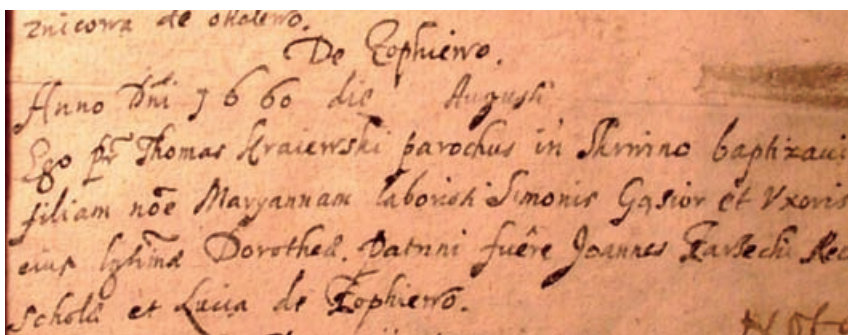 znicowa de okalewo.
De Zophiewo.
Anno Dni 1660 die Augusti
Ego pr Thomas Kraiewski parochus in Skrwino baptizaui
filiam noe Maryannam laboriosi Simonis Gąsior et Vxoris
eius lgtimæ Dorotheæ. Patrini fuêre Joannes Rec
scholæ et Lucia de Zophiewo.